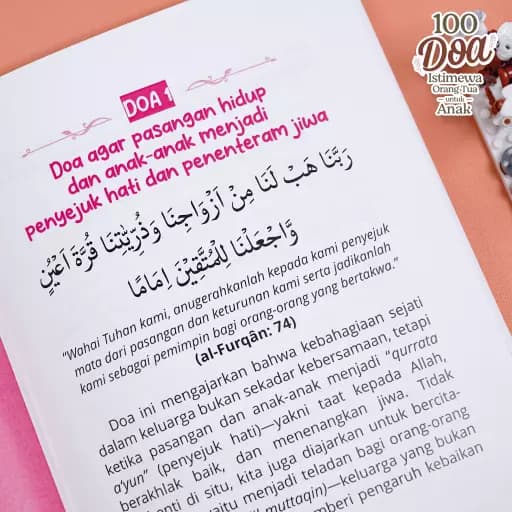 100
Doa
Istimewa
Orang Tua
untuk
Anak
DOA 1
Doa agar pasangan hidup
dan anak-anak menjadi
penyejuk hati dan penenteram jiwa
رَبَّنَا هَبْ لَنَا مِنْ اَزْوَاجِنَا وَذُرِّيّٰتِنَا قُرَّةَ اَعْيُنٍ
وَّاجْعَلْنَا لِلْمُتَّقِيْنَ اِمَامًا
"Wahai Tuhan kami, anugerahkanlah kepada kami penyejuk
mata dari pasangan dan keturunan kami serta jadikanlah
kami sebagai pemimpin bagi orang-orang yang bertakwa."
(al-Furqân: 74)
Doa ini mengajarkan bahwa kebahagiaan sejati
dalam keluarga bukan sekadar kebersamaan, tetapi
ketika pasangan dan anak-anak menjadi "qurrata
a'yun" (penyejuk hati)—yakni taat kepada Allah,
berakhlak baik, dan menenangkan jiwa. Tidak
di situ, kita juga diajarkan untuk bercita-
menjadi teladan bagi orang-orang
muttaqin)—keluarga yang bukan
pengaruh kebaikan